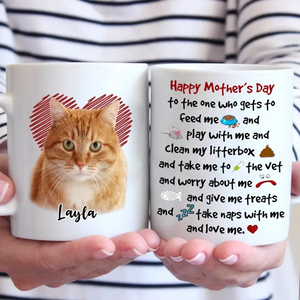 Layla
Happy Mother's Day
to the one who gets to
feed me and
play with me and
clean my litterbox
and take me to the vet
and worry about me
and give me treats
and zzz take naps with me
and love me.